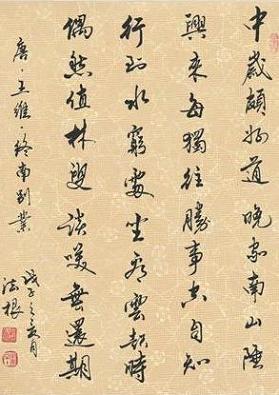 中歲頗好道晚家南山陲
興來每獨往勝事空自知
行到水窮處坐看雲起時
偶然值林叟談咲無還期
唐·王維·終南别業
戊子之亥月
法根